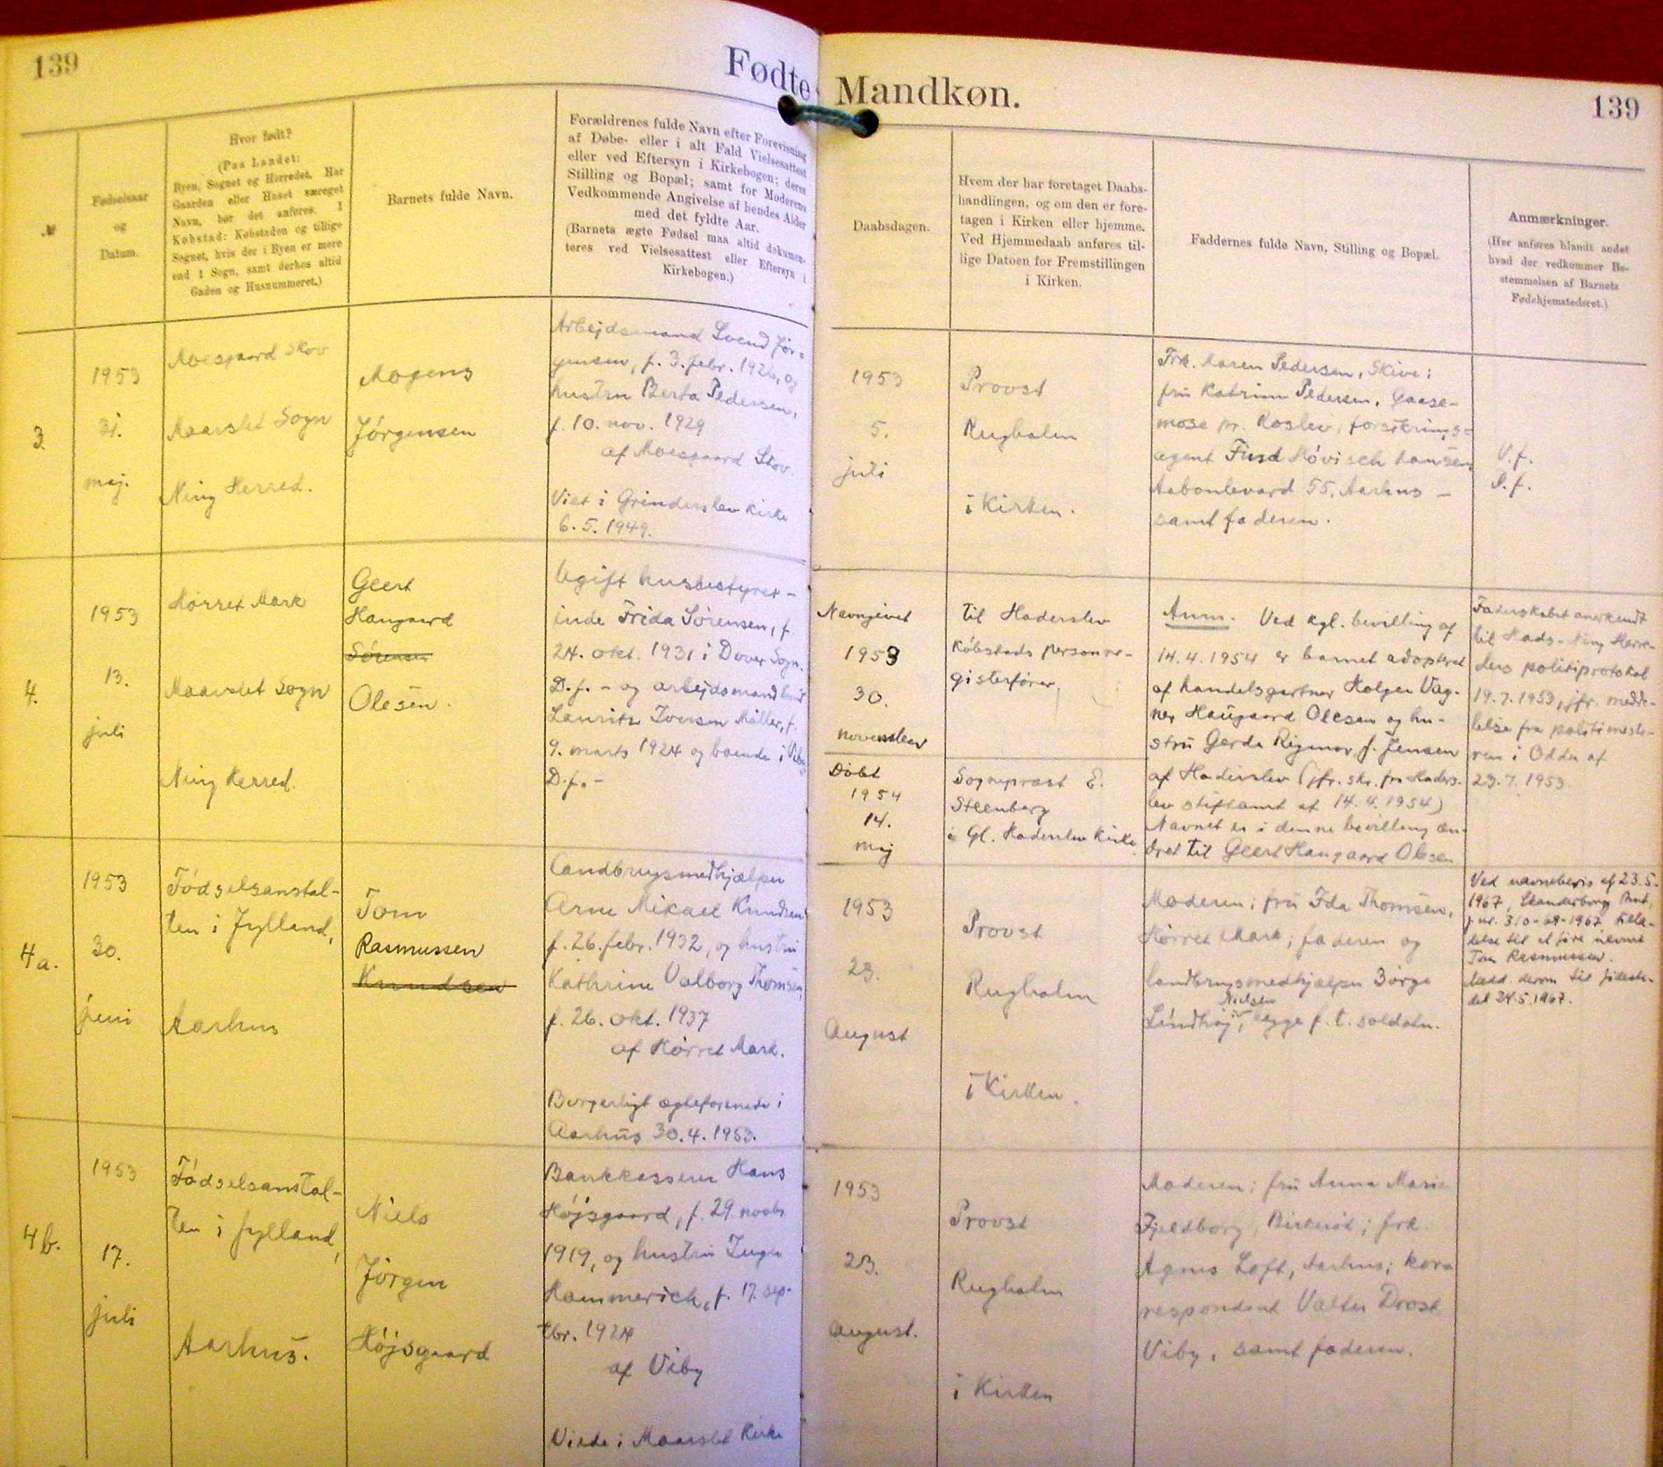 139
Fødte Mandkøn.
139
Fødselsaar
og
Datum.
Hvor født?
(Paa Landet:
Byen, Sognet og Herredet. Har
Gaarden eller Huset særeget
Navn, bør det anføres. I
Købstad: Købstaden og tillige
Sognet, hvis der i Byen er mere
end 1 Sogn, samt derhos altid
Gaden og Husnummeret.)
Barnets fulde Navn.
Forældrenes fulde Navn efter Forevisning
af Døbe- eller i alt Fald Vielsesattest
eller ved Eftersyn i Kirkebogen; deres
Stilling og Bopæl; samt for Moderens
Vedkommende Angivelse af hendes Alder
med det fyldte Aar.
(Barnets ægte Fødsel maa altid dokumen-
teres ved Vielsesattest eller Eftersyn i
Kirkebogen.)
Daabsdagen.
Hvem der har foretaget Daabs-
handlingen, og om den er fore-
tagen i Kirken eller hjemme.
Ved Hjemmedaab anføres til-
lige Datoen for Fremstillingen
i Kirken.
Faddernes fulde Navn, Stilling og Bopæl.
Anmærkninger.
(Her anføres blandt andet
hvad der vedkommer Be-
stemmelsen af Barnets
Fødehjemstedsret.)
3.
1953
31.
maj.
Moesgaard Skov
Maarslet Sogn
Ning Herred.
Mogens
Jörgensen
Arbejdsmand Svend Jør-
gensen, f. 3. febr. 1926, og
hustru Berta Pedersen,
f. 10. nov. 1929
af Moesgaard Skov.
Viet i Grinderslev Kirke
6. 5. 1949.
1953
5.
juli
Provst
Rugholm
i Kirken.
Frk. Maren Pedersen, Skive;
fru Katrine Pedersen, Gaase-
mose pr. Roslev, forsikrings-
agent
Hansen
Aaboulevard 55, Aarhus –
samt faderen.
V. f.
S. f.
4.
1953
13.
juli
Hørret Mark
Maarslet Sogn
Ning Herred.
Geert
Haugaard
Sörensen
Olesen.
Ugift husbestyrer-
inde Frida Sörensen, f.
24. okt. 1931 i Dover Sogn.
D.f. – og arbejdsmand
Laurits Iversen Möller, f.
9. marts 1924 og boende i Viby
D.f. –
Navngivet
1953
30.
november
Til Haderslev
Købstads personre-
gisterfører.
Døbt
1954
14.
maj
Sognepræst E.
Steenberg
i Gl. Haderslev Kirke
Anm. Ved kgl. bevilling af
14.4.1954 er barnet adopteret
af handelsgartner Holger Vag-
ner Haugaard Olesen og hu-
stru Gerda Rigmor, f. Jensen
af Haderslev (jfr. skr. fra Haders-
lev stiftamt af 14.4.1954)
Navnet er i denne bevilling æn-
dret til Geert Haugaard Olesen
Faderskabet anerkendt
til Hads-Ning Herre-
ders politiprotokol
19.7.1953, jfr. medde-
lelse fra politimeste-
ren i Odder af
23.7.1953
4a.
1953
30.
juni
Fødselsanstal-
ten i Jylland,
Aarhus
Tom
Rasmussen
Knudsen
Landbrugsmedhjælper
Arne Mikael Knudsen
f. 26. febr. 1932, og hustru
Kathrine Valborg Thomsen,
f. 26. okt. 1937
af Hørret Mark.
Borgerligt ægteforenede i
Aarhus 30.4.1953.
1953
23.
August
Provst
Rugholm
i Kirken.
Moderen; fru Ida Thomsen,
Hørret Mark; faderen og
landbrugsmedhjælper Börge
Nielsen
Lindhøj, begge f. t. soldater.
Ved navnebevis af 23.5.
1967, Skanderborg Amt,
j. nr. 310-69-1967 tilla-
delse til at føre navnet
Tom Rasmussen.
Medd. derom til fødeste-
det 24.5.1967.
4b.
1953
17.
juli
Fødselsanstal-
ten i Jylland,
Aarhus.
Niels
Jörgen
Højsgaard
Bankkasserer Hans
Højsgaard, f. 29. novbr.
1919, og hustru Inger
Hammerich, f. 17. sep-
tbr. 1924
af Viby
Viede i Maarslet Kirke
1953
23.
August.
Provst
Rugholm
i Kirken
Moderen; fru Anna Marie
Fjeldborg, Birkerød; frk.
Agnes Loft, Aarhus; kor-
respondent Valter Drost
Viby, samt faderen.